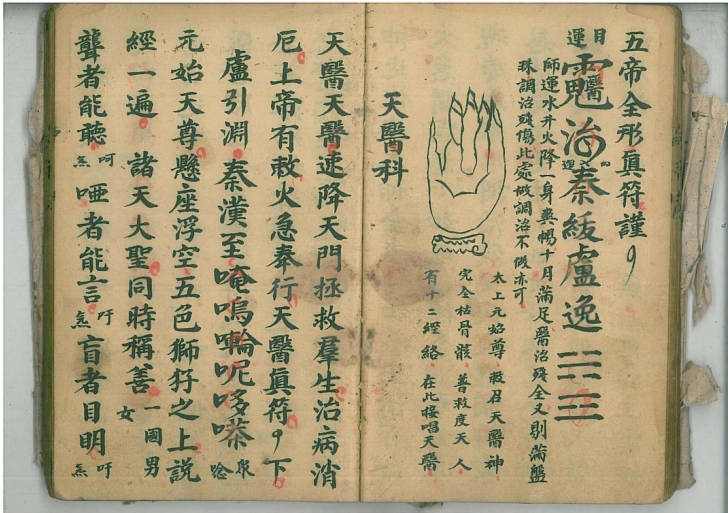 五帝全形眞符謹
目運 治秦緩盧逸
師運水升火降一身爽暢十月滿足醫治殘全又別滿盤
珠調治殘傷此處做調治不做亦可
太上元始尊 敕召天醫神
完全枯骨骸 普救度天人
有十二經絡 在此接唱天醫
天醫科
天醫天醫速降天門拯救羣生治病消
厄上帝有敕火急奉行天醫眞符 下
盧引淵 秦漢至唵嗚 呢哆 眾唸
元始天尊懸座浮空五色獅犼之上說
經一遍 諸天大聖同時稱善 一國男女
聾者能聽 呵 啞者能言 吁 盲者目明 吁